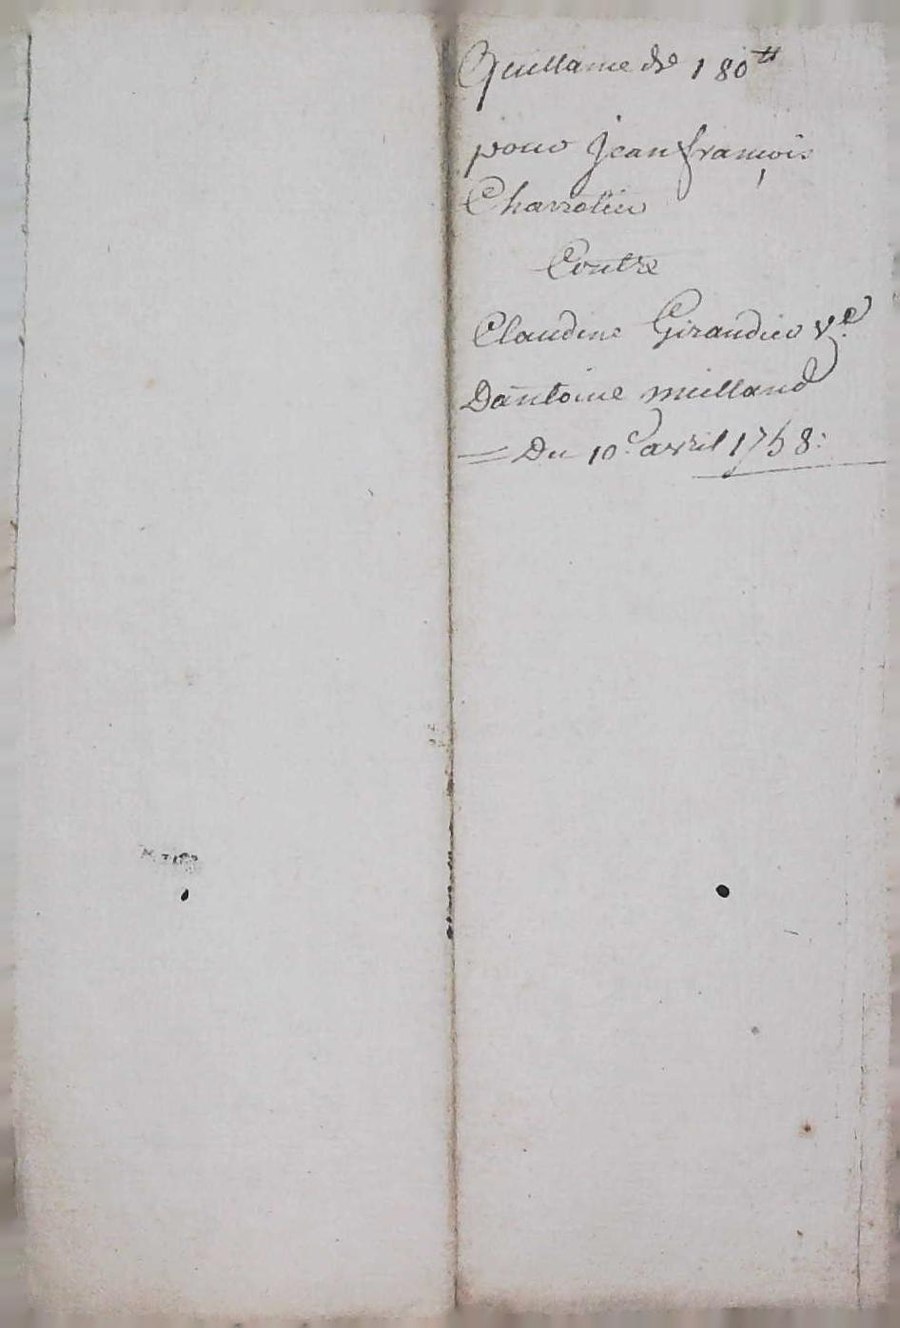 Quittance de 180ᵗᵗ
pour Jean françois
Charretier
Contre
Claudine Giraudier vᵉ
Dantoine milland
= Du 10ᵉ avril 1758: